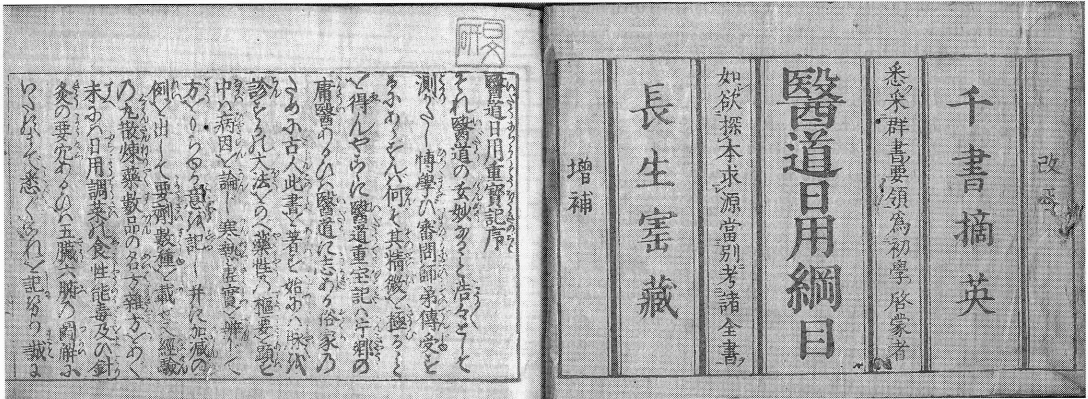 改
千書摘英
悉采群書要領為初學啓蒙者
醫道日用綱目
如欲探本求源當別考諸全書
長生宻藏
増補
醫道日用重寶記序
それ醫道の玄妙なること浩々として
測がたし博學び審問師弟傳受を
るにあらずんバ何ぞ其精微を極ること
を得んやこゝに醫道重宝記ハ片郷の
庸醫あるひハ醫道に志ある俗家の
ために古人此書を著す始にハ脉状
診を大法をのべ藥性の枢要を顕し
中にハ病因を論じ寒熱虚實を辨じて
方を意を記し并に加減の
例を出して要劑数種を載せ經驗
の丸散煉藥数品の名方雜方をあぐ
末にハ日用調菜の食性能毒及び針
灸の要穴あるひハ五臓六腑の図解に
いたるまで悉くこれを記す誠に